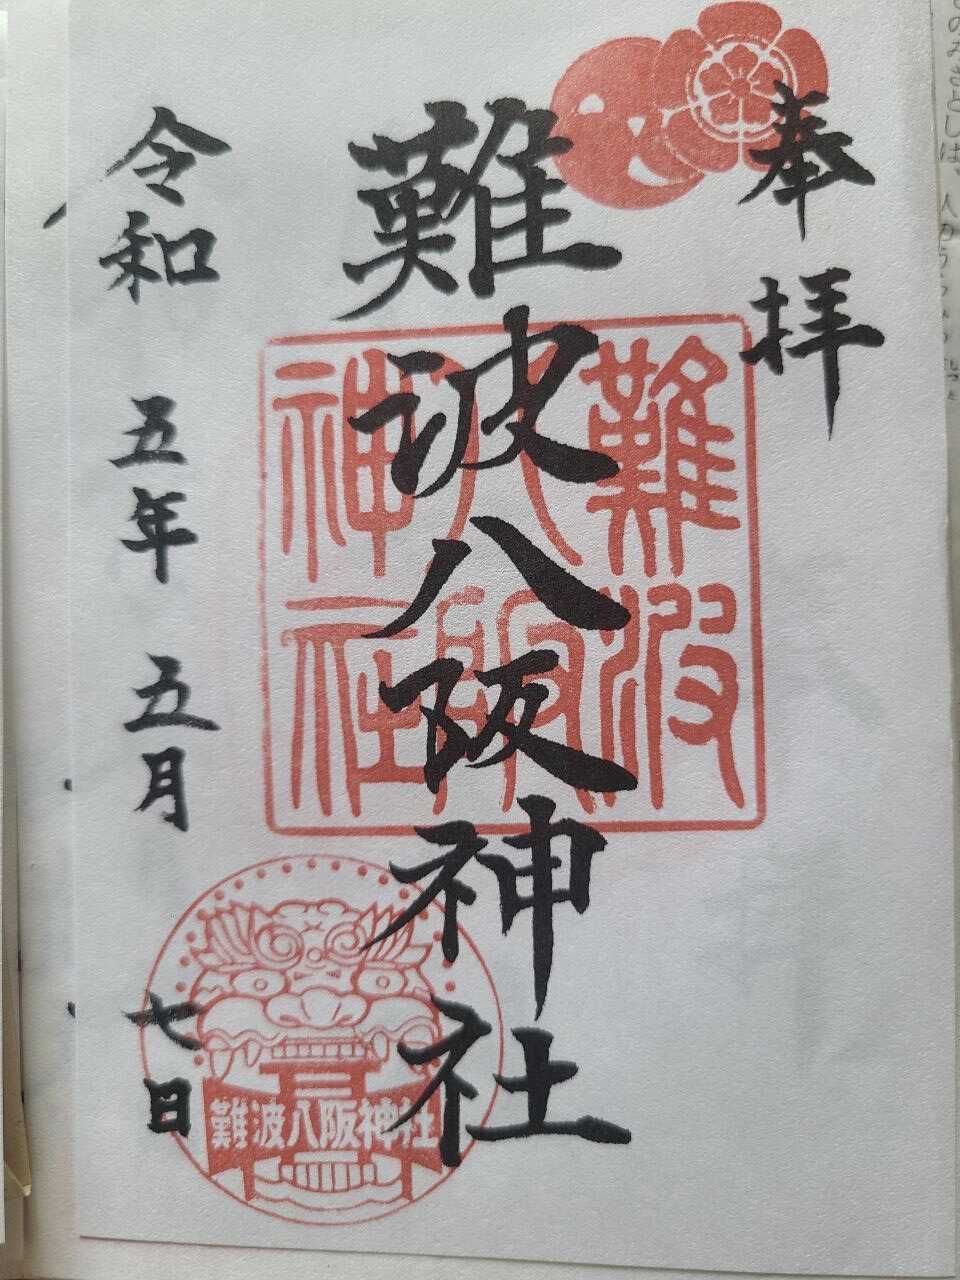 奉拝
難波八阪神社
難波
八阪
神社
令和 五年 五月 七日
難波八阪神社